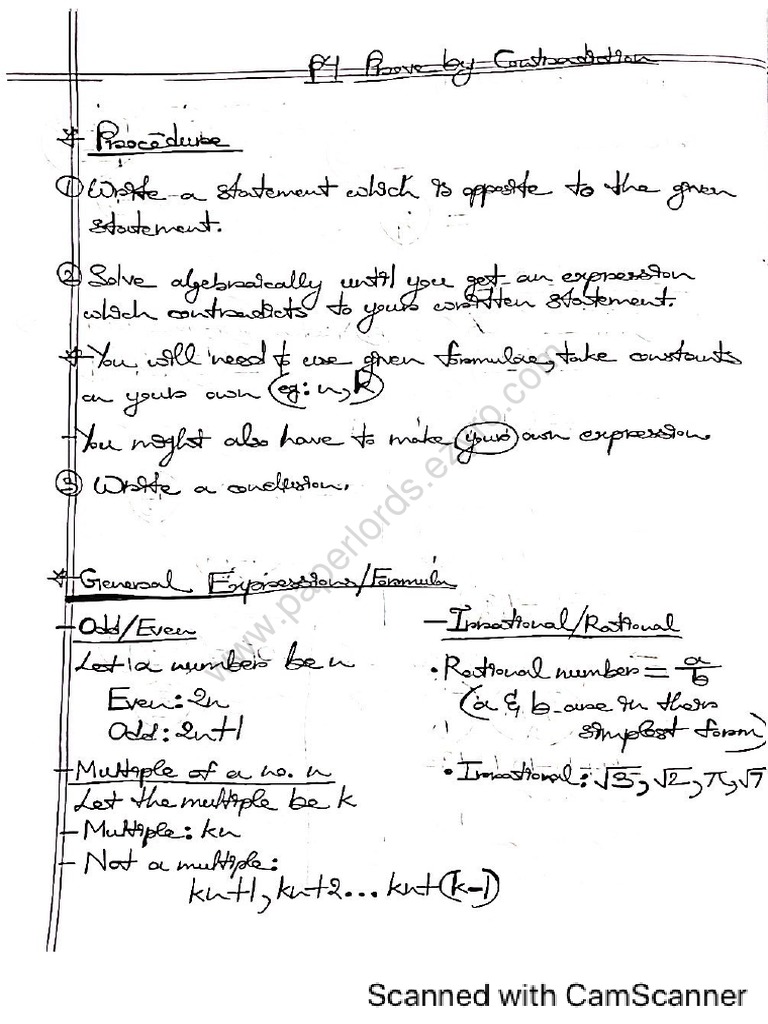 P4 Prove by Contradiction
* Procedure
① Write a statement which is opposite to the given
statement.
② Solve algebraically until you get an expression
which contradicts to your written statement.
* You will need to use given formulae, take constants
on your own (eg: n, k)
- You might also have to make your own expression.
③ Write a conclusion.
* General Expressions/Formula
- Odd/Even
Let a number be n
Even: 2n
Odd: 2n+1
- Multiple of a no. n
Let the multiple be k
- Multiple: kn
- Not a multiple:
kn+1, kn+2... kn+(k-1)
- Irrational/Rational
• Rational number = a/b
(a & b are in their
simplest form)
• Irrational: √3, √2, π, √7
www.paperlords.ezyro.com
Scanned with CamScanner